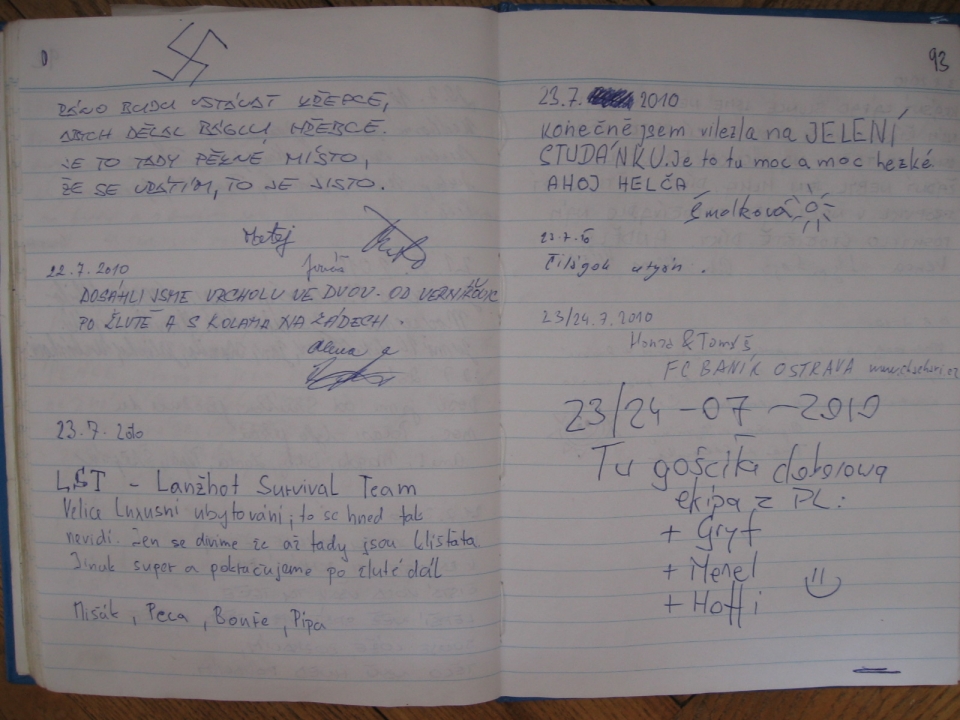 RÁNO BUDU VSTÁVAT KŘEPCE,
ABYCH DĚLAL BÁGLU HŘEBCE.
JE TO TADY PĚKNÉ MÍSTO,
ŽE SE VRÁTÍM, TO JE JISTO.
Matěj
22.7.2010
DOSÁHLI JSME VRCHOLU VE DVOU. OD VERNÍŘOVIC
PO ŽLUTÉ A S KOLAMA NA ZÁDECH.
Alena a
23.7.2010
LST - Lanžhot Survival Team
Velice luxusní ubytování, to se hned tak
nevidí. Jen se divíme že až tady jsou klíšťata.
Jinak super a pokračujeme po žluté dál
Mišák, Peca, Bouře, Pípa
93
23.7. 2010
Konečně jsem vylezla na JELENÍ
STUDÁNKU. Je to tu moc a moc hezké.
AHOJ HELČA
Čmolková
23.7.10
23/24.7.2010
Honza & Tomáš
FC BANÍK OSTRAVA www.chachari.cz
23/24 -07 -2010
Tu gościła doborowa
ekipa z PL:
+ Gryf
+ Menel
+ Hoffi